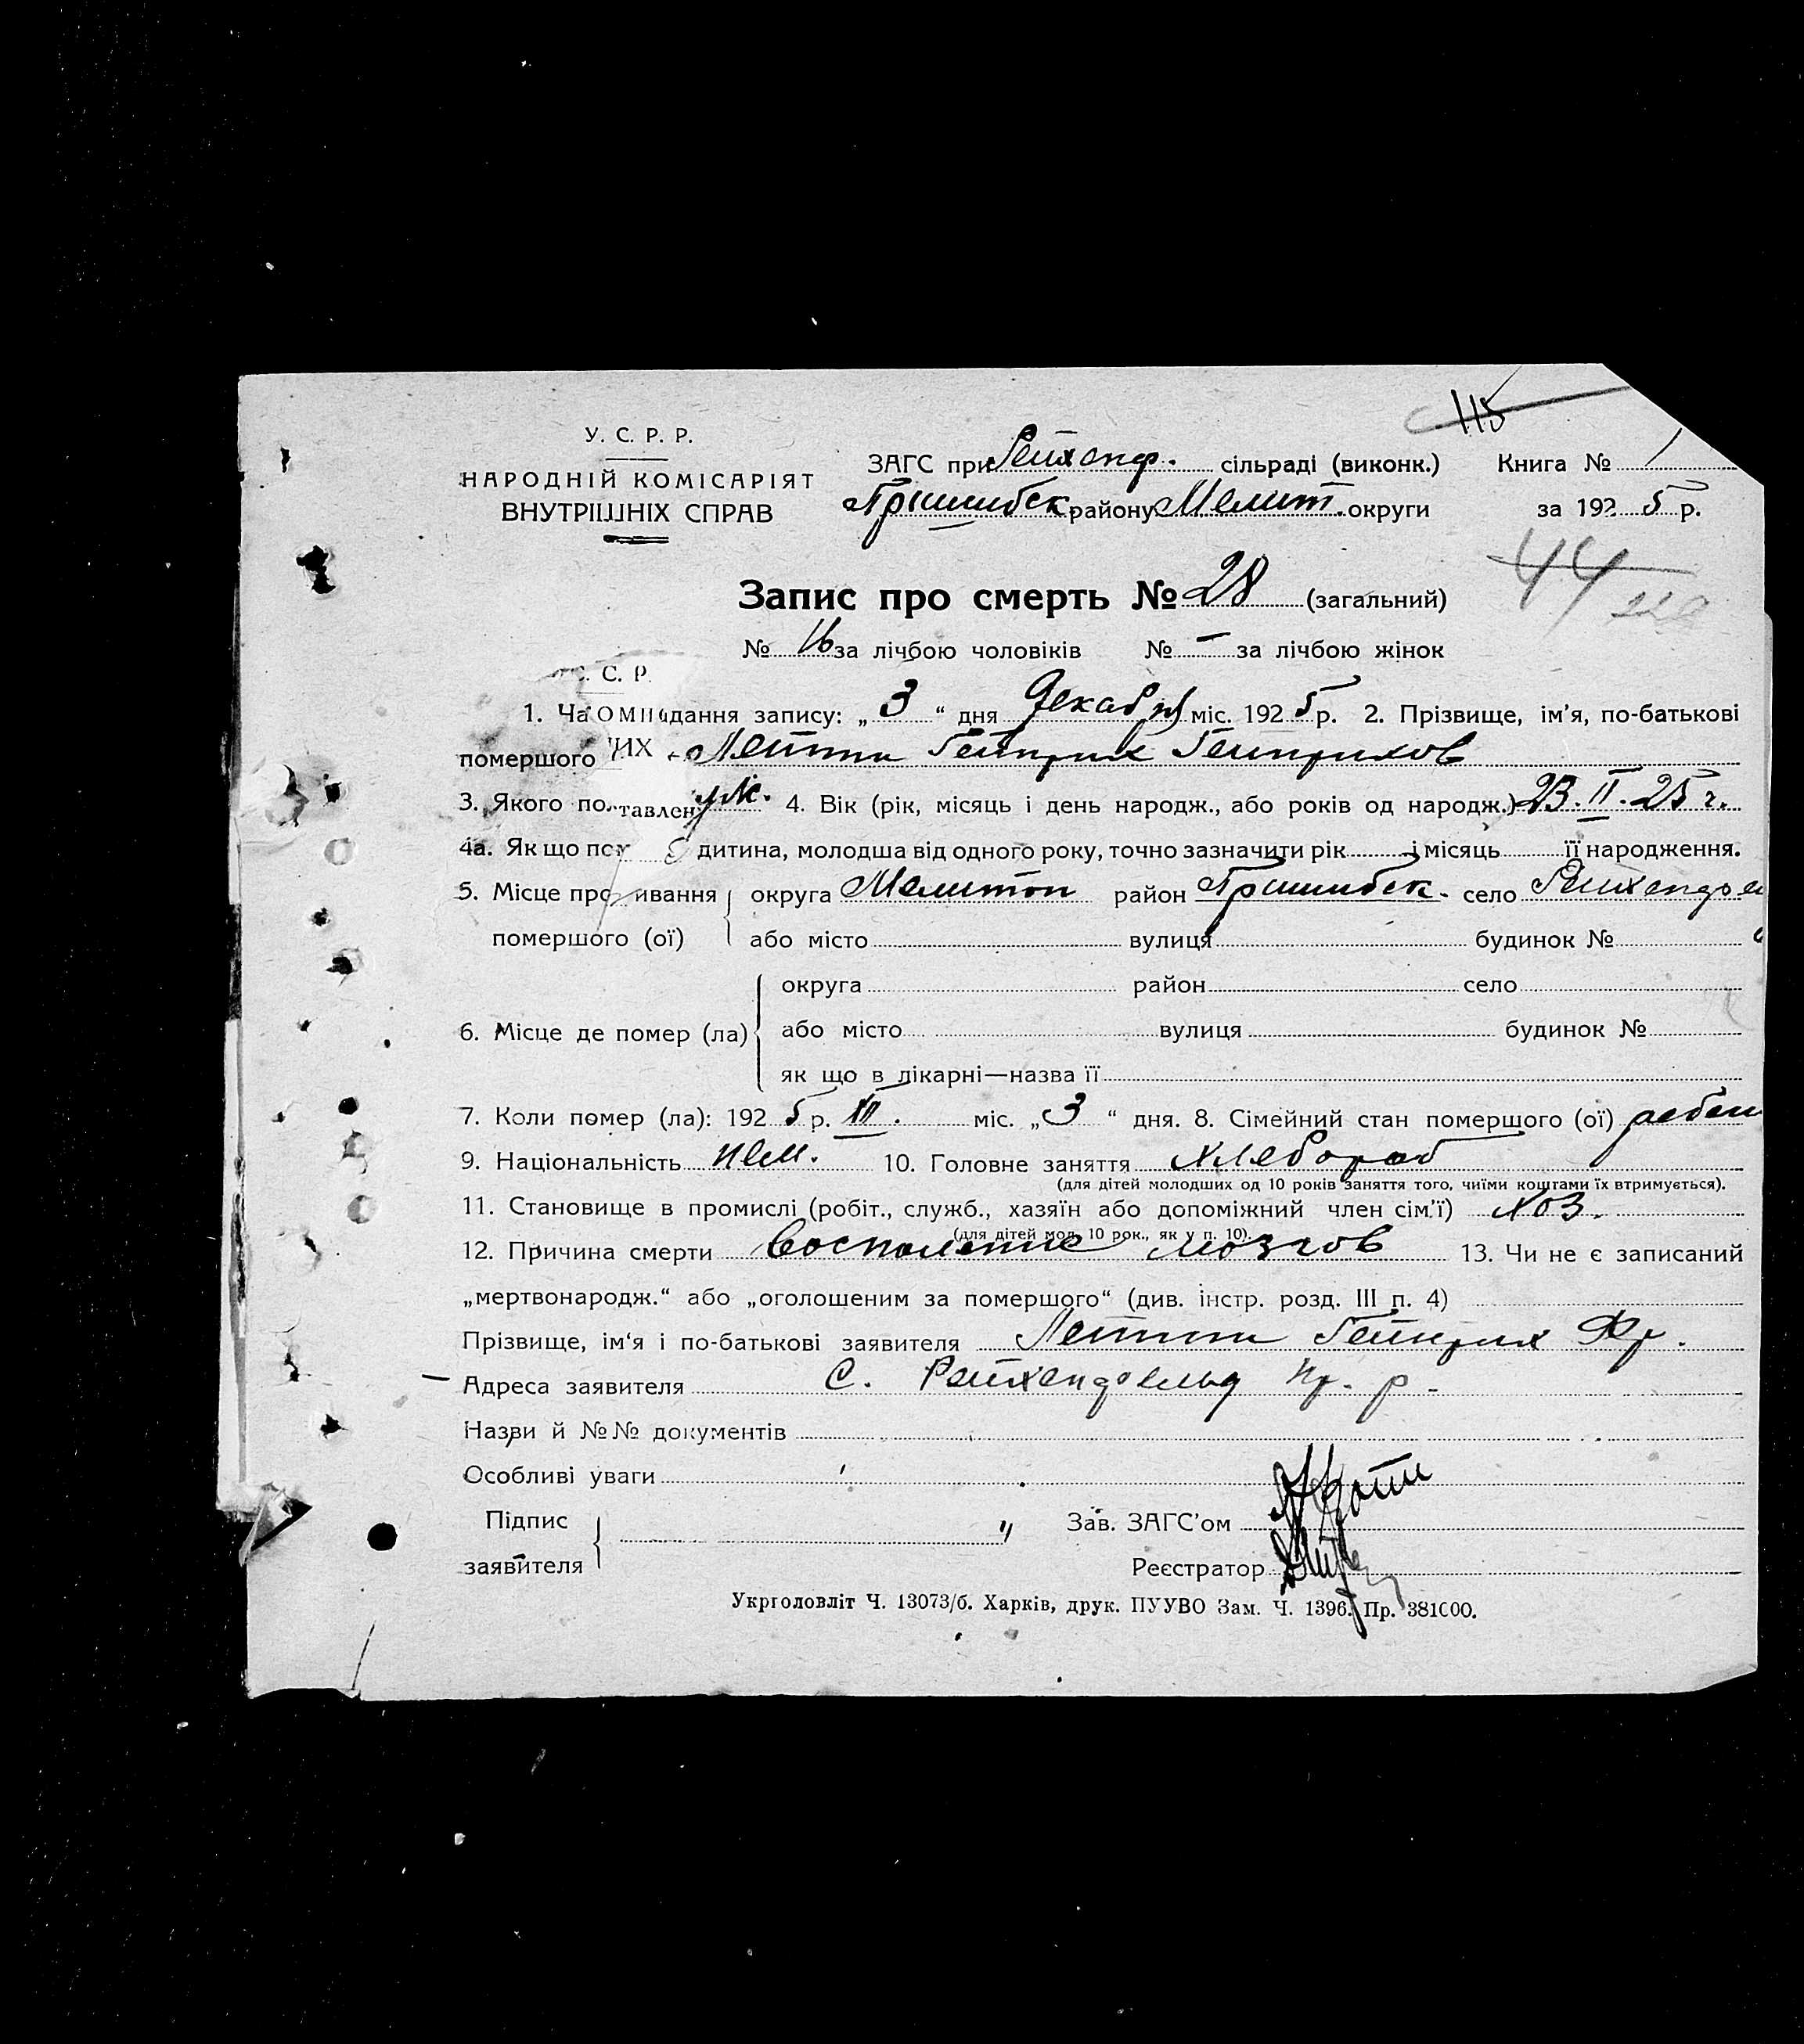 115
У. С. Р. Р.
НАРОДНІЙ КОМІСАРІЯТ
ВНУТРІШНІХ СПРАВ
ЗАГС при Рейхенф. сільраді (виконк.) Книга № 1
Пришибск. району Мелит. округи за 1925 р.
44
Запис про смерть № 28 (загальний)
№ 16 за лічбою чоловіків № — за лічбою жінок
С. Р.
1. Ча дання запису: „3“ дня Декабря міс. 1925 р. 2. Прізвище, ім’я, по-батькові
помершого Гейнрих Гейнрихов
3. Якого по м. 4. Вік (рік, місяць і день народж., або років од народж.) 23.II.25 г.
4а. Як що дитина, молодша від одного року, точно зазначити рік і місяць її народження.
5. Місце про ивання округа Мелитоп район Пришибск. село Рейхенфел
помершого (ої) або місто вулиця будинок №
округа район село
6. Місце де помер (ла) або місто вулиця будинок №
як що в лікарні—назва її
7. Коли помер (ла): 1925 р. міс. „3“ дня. 8. Сімейний стан помершого (ої) ребен
9. Національність нем. 10. Головне заняття хлебороб
(для дітей молодших од 10 років заняття того, чиїми коштами їх втримується).
11. Становище в промислі (робіт., служб., хазяїн або допоміжний член сім’ї) хоз.
(для дітей мол. 10 рок., як у п. 10).
12. Причина смерти Воспаление мозгов 13. Чи не є записаний
„мертвонародж.“ або „оголошеним за помершого“ (див. інстр. розд. III п. 4)
Прізвище, ім‘я і по-батькові заявителя Гейнрих Фр.
Адреса заявителя С. Рейхенфельд Пр. р.
Назви й №№ документів
Особливі уваги
Підпис
заявителя
Зав. ЗАГС’ом
Реєстратор
Укрголовліт Ч. 13073/б. Харків, друк. ПУУВО Зам. Ч. 1396. Пр. 381000.